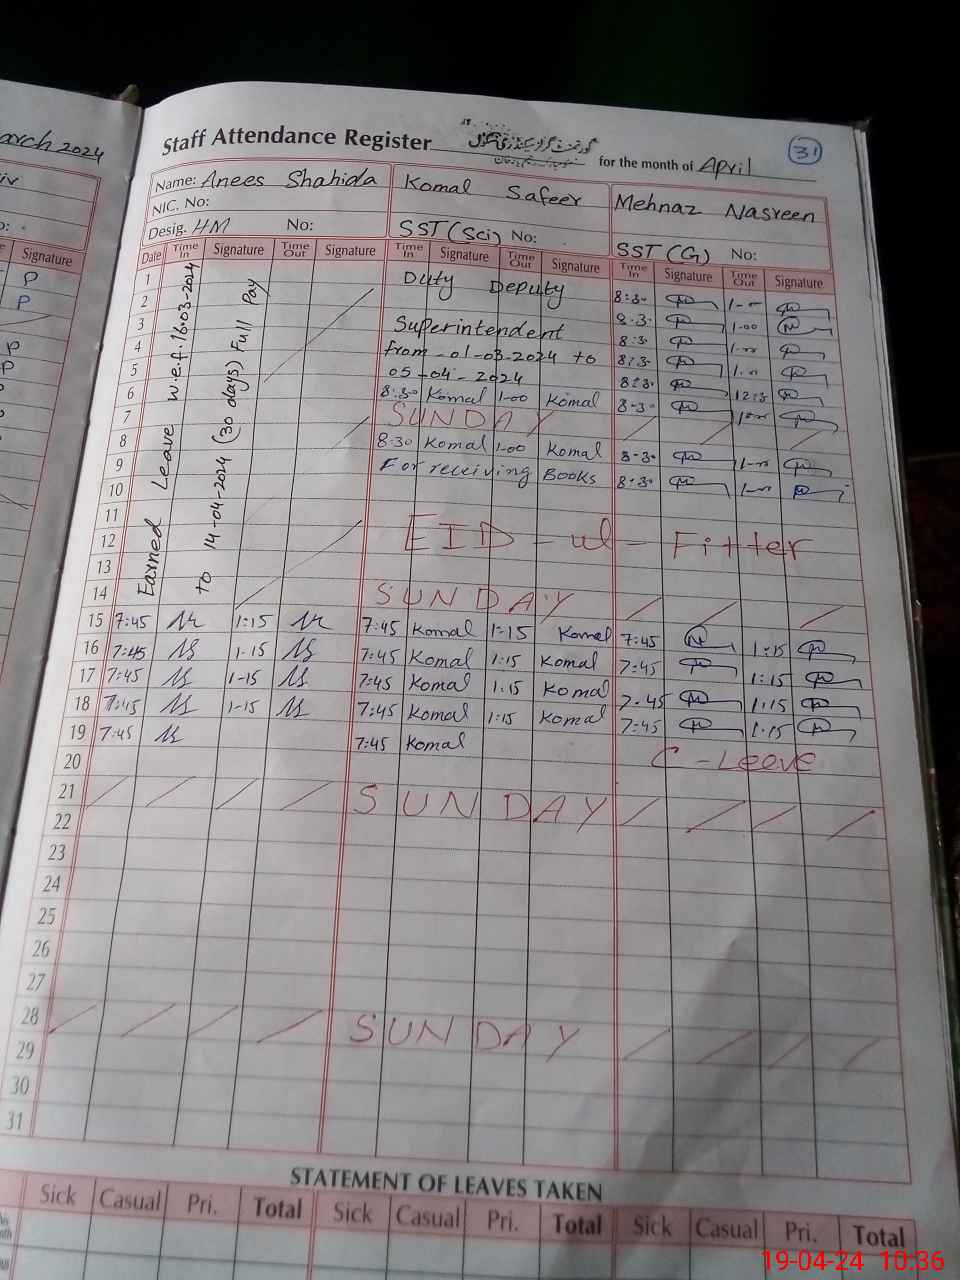 arch 2024
Signature
P
P
P
P
Staff Attendance Register
for the month of April
31
Name: Anees Shahida
Komal Safeer
Mehnaz Nasreen
NIC. No:
Desig. HM No:
SST (Sci) No:
SST (G) No:
Date Time In Signature Time Out Signature Time In Signature Time Out Signature Time In Signature Time Out Signature
Earned Leave w.e.f 16-03-2024
to 14-04-2024 (30 days) Full Pay
Duty Deputy
Superintendent
from -01-03-2024 to
05-04-2024
1 8:30
2 8.3. 1-00
3 8:3.
4 8:3.
5 8:3. 12:3
6 8:30 Komal 1-00 Komal 8-3.
7 SUNDAY
8 8-30 Komal 1-00 Komal 8-30
9 For receiving Books 8:30
10
11
12 EID - ul - Fitter
13
14 SUNDAY
15 7:45 1:15 7:45 Komal 1:15 Komal 7:45 1:15
16 7:45 1-15 7:45 Komal 1:15 Komal 7:45 1:15
17 7:45 1-15 7:45 Komal 1:15 Komal 7.45 1:15
18 7:45 1-15 7:45 Komal 1:15 Komal 7:45 1:15
19 7:45 7:45 Komal C-Leave
20
21 SUNDAY
22
23
24
25
26
27
28 SUNDAY
29
30
31
STATEMENT OF LEAVES TAKEN
Sick Casual Pri. Total Sick Casual Pri. Total Sick Casual Pri. Total
19-04-24 10:36